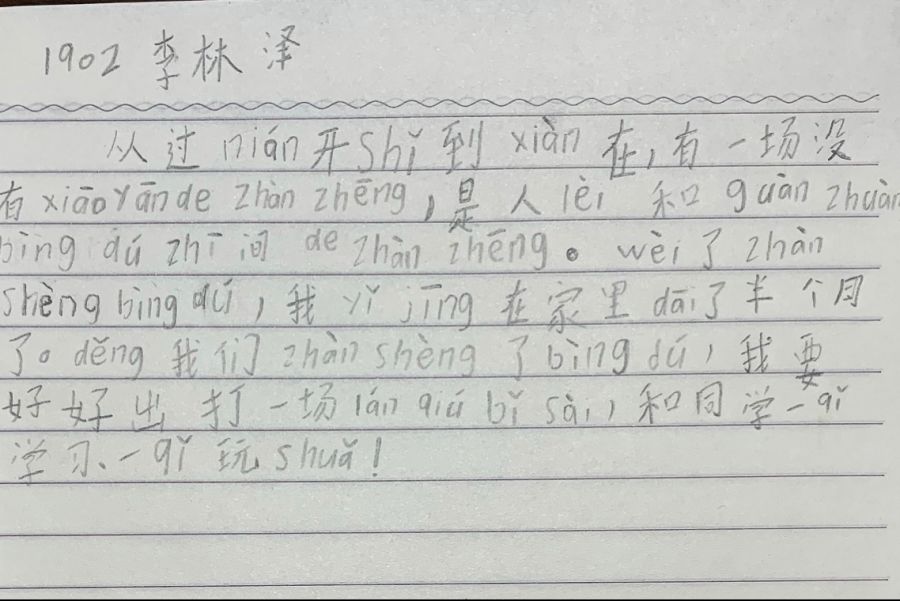 1902 李林泽
从过nián开Shǐ到xiàn在,有一场没
有xiāoYānde zhàn zhēng,是人lèi和guàn zhuàn
bìng dú zhī间de zhàn zhēng。wèi了zhàn
shèng bìng dú,我yǐ jīng在家里dāi了半个月
了。děng我们zhàn shèng了bìng dú,我要
好好出打一场lán qiú bǐ sài,和同学一qǐ
学习、一qǐ玩shuǎ!